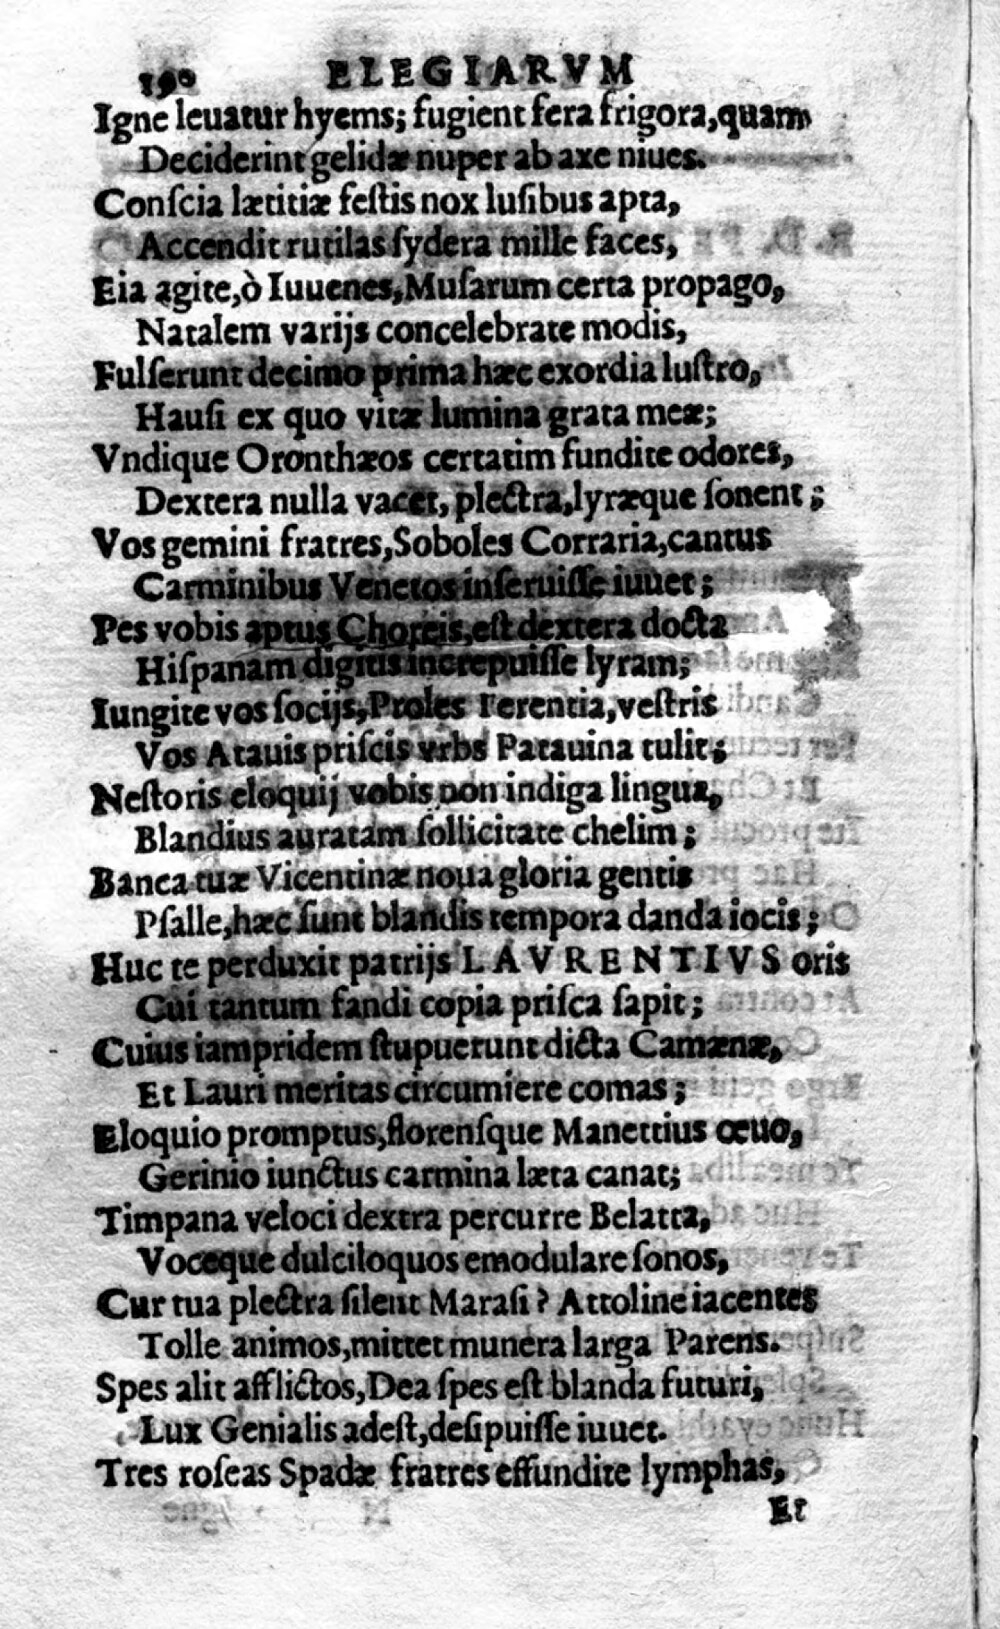 190 ELEGIARVM
Igne leuatur hyems; fugient fera frigora, quam
Deciderint gelidæ nuper ab axe niues.
Conſcia lætitiæ feſtis nox luſibus apta,
Accendit rutilas ſydera mille faces,
Eia agite, ò Iuuenes, Muſarum certa propago,
Natalem varijs concelebrate modis,
Fulſerunt decimo prima hæc exordia luſtro,
Hauſi ex quo vitæ lumina grata meæ;
Vndique Oronthæos certatim fundite odores,
Dextera nulla vacet, plectra, lyræque ſonent;
Vos gemini fratres, Soboles Corraria, cantus
Carminibus Venetos inſeruiſſe iuuet;
Pes vobis aptus Choreis, eſt dextera docta
Hiſpanam digitis increpuiſſe lyram;
Iungite vos ſocijs, Proles Ferentia, veſtris
Vos Atauis priſcis vrbs Patauina tulit;
Neſtoris eloquij vobis non indiga lingua,
Blandius auratam ſollicitate chelim;
Banca tuæ Vicentinæ noua gloria gentis
Pſalle, hæc ſunt blandis tempora danda iocis;
Huc te perduxit patrijs LAVRENTIVS oris
Cui tantum fandi copia priſca ſapit;
Cuius iampridem ſtupuerunt dicta Camænæ,
Et Lauri meritas circumiere comas;
Eloquio promptus, florenſque Manettius œuo,
Gerinio iunctus carmina læta canat;
Timpana veloci dextra percurre Belatta,
Voceque dulciloquos emodulare ſonos,
Cur tua plectra ſilent Maraſi? Attoline iacentes
Tolle animos, mittet munera larga Parens.
Spes alit afflictos, Dea ſpes eſt blanda futuri,
Lux Genialis adeſt, deſipuiſſe iuuet.
Tres roſeas Spadæ fratres effundite lymphas,
Et